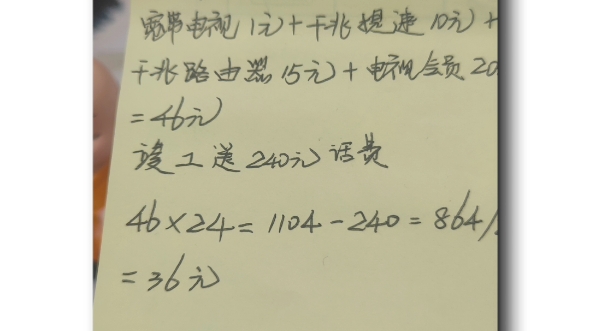 宽带电视1元+千兆提速10元+
千兆路由器15元+电视会员20
=46元
竣工送240元话费
46×24=1104-240=864/
=36元